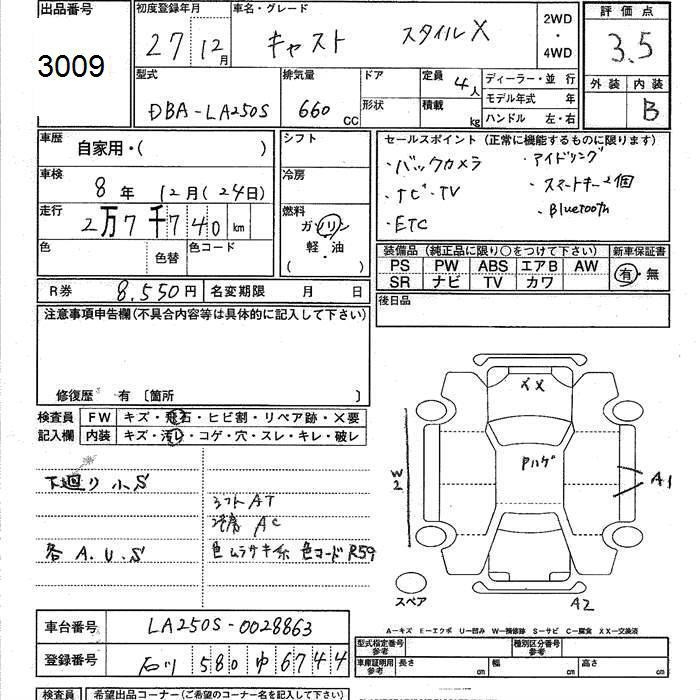 出品番号
3009
初度登録年月
27 12月
車名・グレード
キャスト スタイルX
2WD
・
4WD
評価点
3.5
外装 内装
B
型式
DBA-LA250S
排気量
660 cc
ドア
形状
定員 4人
積載 kg
ディーラー・並行
モデル年式 年
ハンドル 左・右
車歴
自家用・( )
車検
8年 12月(24日)
走行
2万7千740km
色 色替 色コード
シフト
冷房
燃料
ガソリン
軽・油
( )
セールスポイント(正常に機能するものに限ります)
・バックカメラ
・ナビ・TV
・ETC
・アイドリング
・スマートキー2個
・Bluetooth
装備品(純正品に限り○をつけて下さい)
PS PW ABS エアB AW
SR ナビ TV カワ
新車保証書
有・無
後日品
R券 8,550円 名変期限 月 日
注意事項申告欄(不具合内容等は具体的に記入して下さい)
修復歴 有〔箇所 〕
検査員
記入欄
FW キズ・飛石・ヒビ割・リペア跡・×要
内装 キズ・汚レ・コゲ・穴・スレ・キレ・破レ
下廻り小S
各A.U.S
シフトAT
冷房 AC
色ムラサキ系 色コードR59
XX
Pハゲ
W2
A1
A2
スペア
A-キズ E-エクボ U-凹み W-補修跡 S-サビ C-腐食 XX-交換済
車台番号 LA250S-0028863
登録番号 石川 580 ゆ 6744
型式指定番号
参考
種別区分番号
参考
車庫証明用
参考
長さ cm 幅 cm 高さ cm
検査員 希望出品コーナー(ご希望のコーナー名を記入下さい)